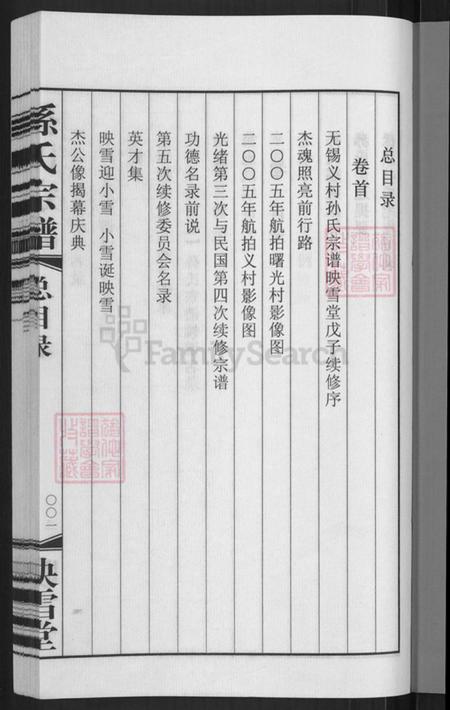 总目录
卷首
无锡义村孙氏宗谱映雪堂戊子续修序
杰魂照亮前行路
二〇〇五年航拍曙光村影像图
二〇〇五年航拍义村影像图
光绪第三次与民国第四次续修宗谱
功德名录前说
第五次续修委员会名录
英才集
映雪迎小雪 小雪诞映雪
杰公像揭幕庆典
孫氏宗谱
总目录
〇〇一
映雪堂
FamilySearch